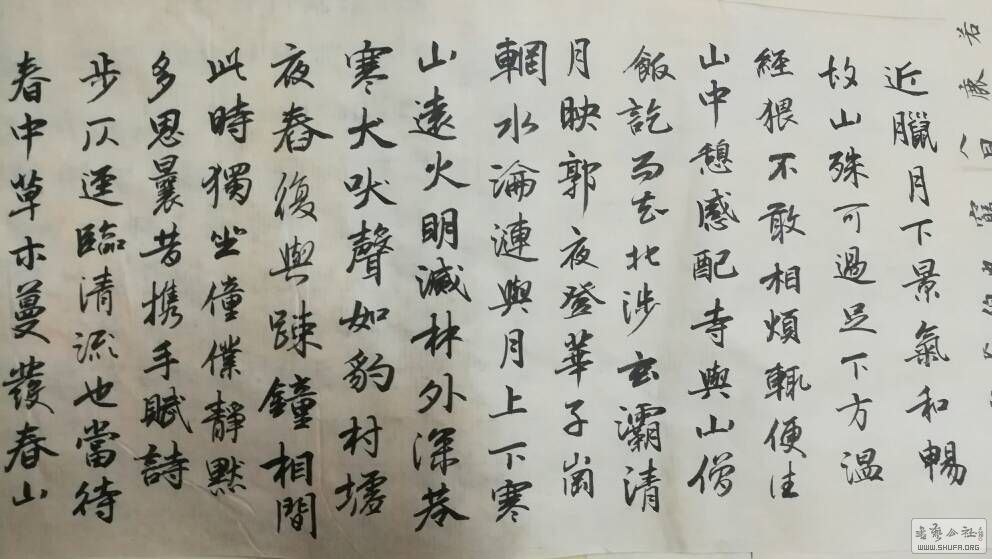 近臘月下景氣和暢
故山殊可過足下方溫
經猥不敢相煩輒便往
山中憩感配寺與山僧
飯訖而去北涉玄灞清
月映郭夜登華子崗
輞水淪漣與月上下寒
山遠火明滅林外深巷
寒犬吠聲如豹村墟
夜舂復與疎鐘相間
此時獨坐僮僕靜默
多思曩昔携手賦詩
步仄逕臨清流也當待
春中草木蔓發春山
書藝公社
WWW.SHUFA.ORG